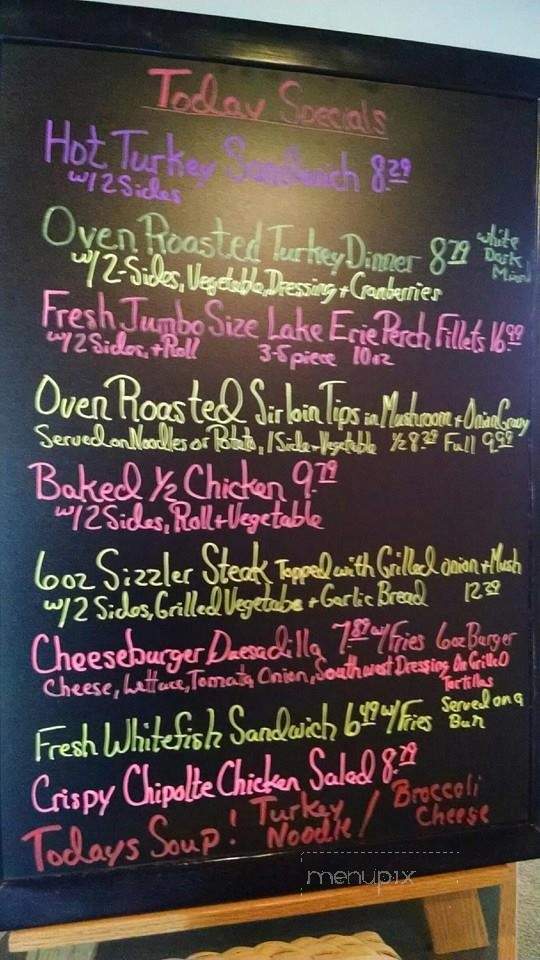 Today Specials
Hot Turkey Sandwich 8.29
w/2 Sides
Oven Roasted Turkey Dinner 8.79 White Dark Mixed
w/2-Sides, Vegetable, Dressing + Cranberries
Fresh Jumbo Size Lake Erie Perch Fillets 16.99
w/2 Sides, + Roll 3-5 piece 10oz
Oven Roasted Sirloin Tips in Mushroom + Onion Gravy
Served on Noodles or Potato, 1 Side + Vegetable ½ 8.39 Full 9.99
Baked ½ Chicken 9.79
w/2 Sides, Roll + Vegetable
6oz Sizzler Steak Topped with Grilled onion + Mush
w/2 Sides, Grilled Vegetabe + Garlic Bread 12.39
Cheeseburger Quesadilla 7.89 w/Fries 6oz Burger
Cheese, Lettuce, Tomato, Onion, Southwest Dressing On Grilled
Tortillas
Fresh Whitefish Sandwich 6.49 w/Fries Served on a Bun
Crispy Chipolte Chicken Salad 8.79
Todays Soup! Turkey Noodle / Broccoli Cheese
menupix